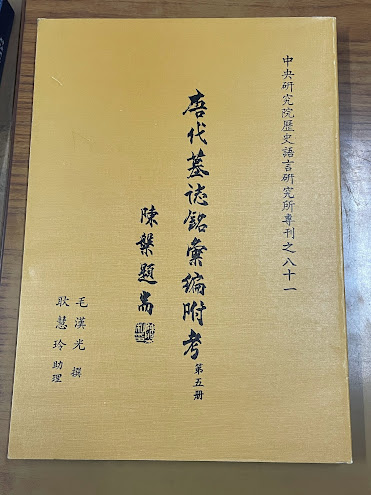 中央研究院歷史語言研究所專刊之八十一
唐代墓誌銘彙編附考 第五册
陳槃題耑
毛漢光 撰
耿慧玲 助理